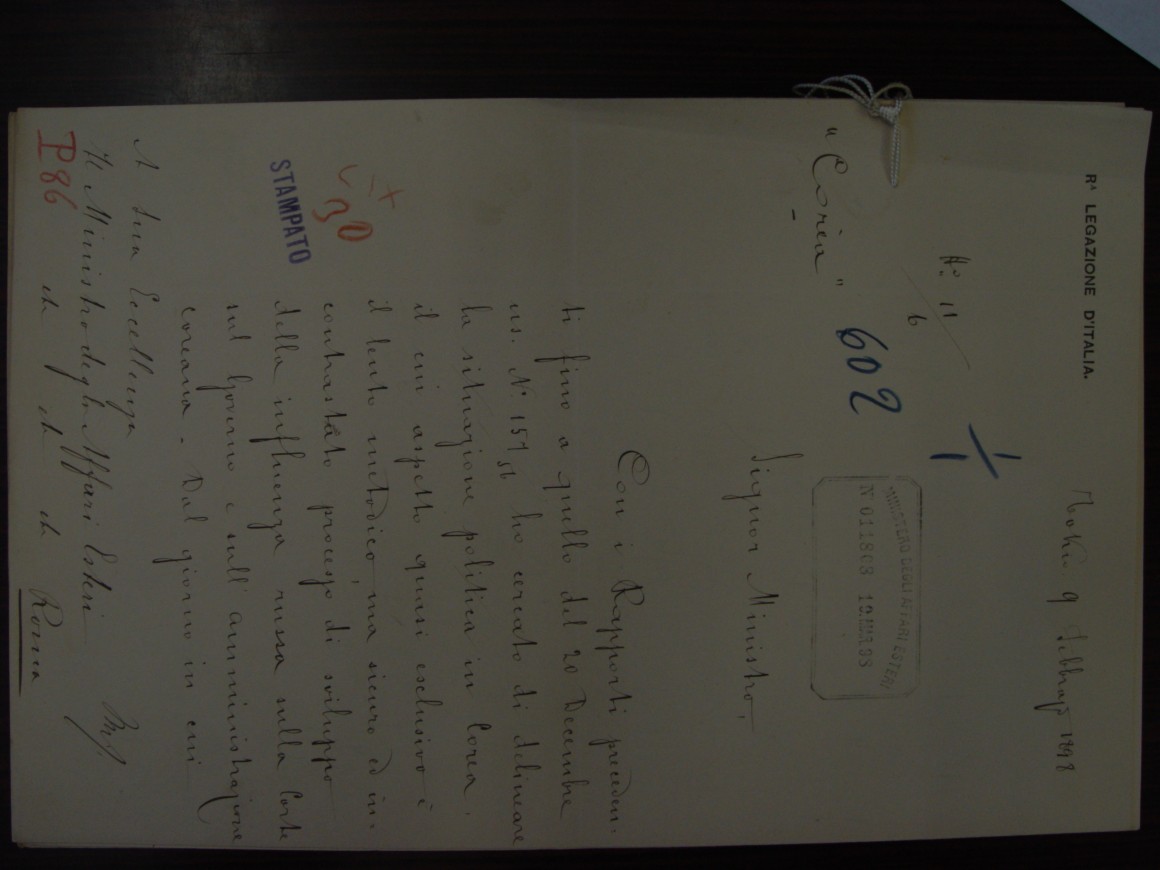 Rª LEGAZIONE D'ITALIA.
Tokio 9 Febbraio 1898
Nº 11/6
"Corèa"
602
MINISTERO DEGLI AFFARI ESTERI
Nº 011808 19.MAR.98
Signor Ministro,
Con i Rapporti preceden-
ti fino a quello del 20 Decembre
us. Nº 157/56 ho cercato di delineare
la situazione politica in Corea,
il cui aspetto quasi esclusivo è
il lento metodico, ma sicuro ed in-
contrastato processo di sviluppo
della influenza russa sulla Corte
sul Governo e sull'amministrazione
coreana. Dal giorno in cui
30
STAMPATO
A Sua Eccellenza
Il Ministro degli Affari Esteri
P86
etc etc etc Roma